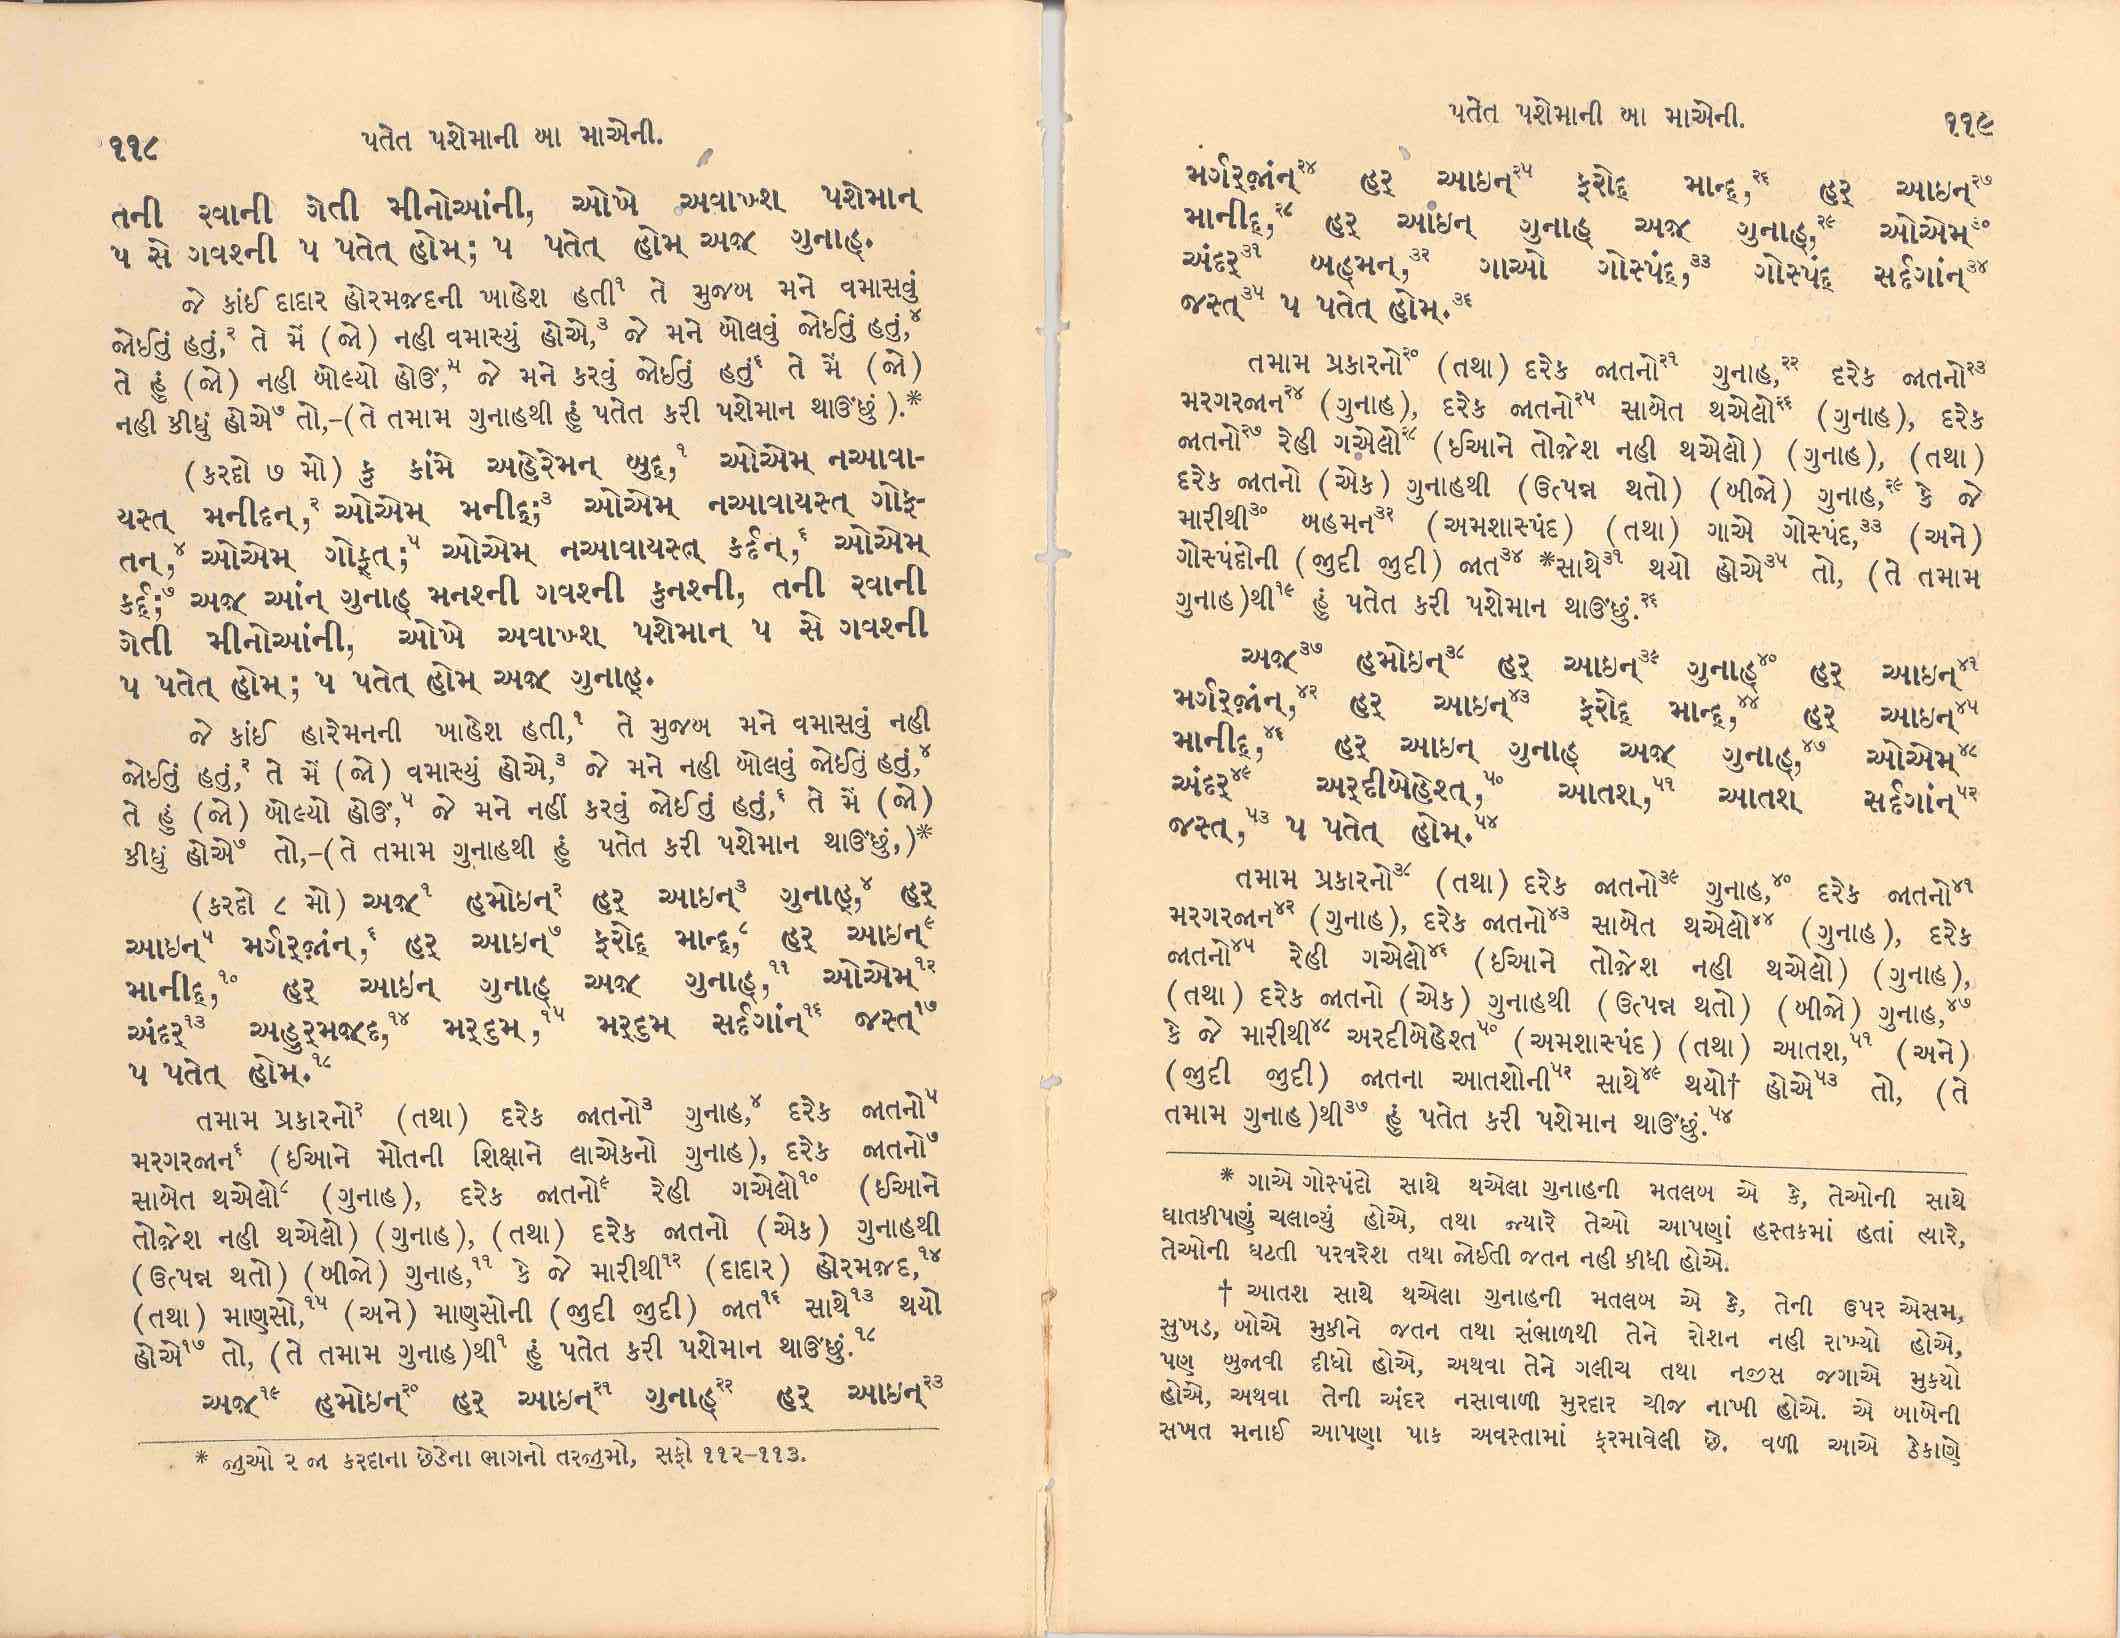 ૧૧૮ પતેત પશેમાની બા માએની.
તની રવાની ગેતી મીનોઆંની, ઓખે અવાખ્શ્ પશેમાન્
પ સે ગવશ્ની પ પતેત્ હોમ્; પ પતેત્ હોમ્ અજ઼્ ગુનાહ્.
જે કાંઈ દાદાર હોરમજ઼દની ખાહેશ હતી૧ તે મુજબ મને વમાસવું
જોઈતું હતું,૨ તે મેં (જો) નહી વમાસ્યું હોએ,૩ જે મને બોલવું જોઈતું હતું,૪
તે હું (જો) નહી બોલ્યો હોઊં,૫ જે મને કરવું જોઈતું હતું૬ તે મેં (જો)
નહી કીધું હોએ૭ તો,–(તે તમામ ગુનાહથી હું પતેત કરી પશેમાન થાઊંછું).*
(કરદો ૭ મો) કુ કાંમે અહેરેમન્ બુદ્,૧ ઓએમ્ નઆવા-
યસ્ત્ મનીદન્,૨ ઓએમ્ મનીદ્;૩ ઓએમ્ નઆવાયસ્ત્ ગોફ્-
તન્,૪ ઓએમ્ ગોફ્ત્;૫ ઓએમ્ નઆવાયસ્ત્ કર્દન્,૬ ઓએમ્
કર્દ્;૭ અજ઼્ આંન્ ગુનાહ્ મનશ્ની ગવશ્ની કુનશ્ની, તની રવાની
ગેતી મીનોઆંની, ઓખે અવાખ્શ્ પશેમાન્ પ સે ગવશ્ની
પ પતેત્ હોમ્; પ પતેત્ હોમ્ અજ઼્ ગુનાહ્.
જે કાંઈ હારેમનની ખાહેશ હતી,૧ તે મુજબ મને વમાસવું નહી
જોઈતું હતું,૨ તે મેં (જો) વમાસ્યું હોએ,૩ જે મને નહી બોલવું જોઈતું હતું,૪
તે હું (જો) બોલ્યો હોઊં,૫ જે મને નહીં કરવું જોઈતું હતું,૬ તે મેં (જો)
કીધું હોએ૭ તો,–(તે તમામ ગુનાહથી હું પતેત કરી પશેમાન થાઊંછું,)*
(કરદો ૮ મો) અજ઼્૧ હમોઇન્૨ હર્ આઇન્૩ ગુનાહ્,૪ હર્
આઇન્૫ મર્ગર્જ઼ાંન્,૬ હર્ આઇન્૭ ફરોદ્ માન્દ્,૮ હર્ આઇન્૯
માનીદ્,૧૦ હર્ આઇન્ ગુનાહ્ અજ઼્ ગુનાહ્,૧૧ ઓએમ્૧૨
અંદર્૧૩ અહુર્મજ઼્દ,૧૪ મર્દુમ્,૧૫ મર્દુમ્ સર્દગાંન્૧૬ જસ્ત્૧૭
પ પતેત્ હોમ્.૧૮
તમામ પ્રકારનો૨ (તથા) દરેક જાતનો૩ ગુનાહ,૪ દરેક જાતનો૫
મરગરજાન૬ (ઈઆને મોતની શિક્ષાને લાએકનો ગુનાહ), દરેક જાતનો૭
સાબેત થએલો૮ (ગુનાહ), દરેક જાતનો૯ રેહી ગએલો૧૦ (ઈઆને
તોજેશ નહી થએલો) (ગુનાહ), (તથા) દરેક જાતનો (એક) ગુનાહથી
(ઉત્પન્ન થતો) (બીજો) ગુનાહ,૧૧ કે જે મારીથી૧૨ (દાદાર) હોરમજ઼દ,૧૪
(તથા) માણસો,૧૫ (અને) માણસોની (જુદી જુદી) જાત૧૬ સાથે૧૩ થયો
હોએ૧૭ તો, (તે તમામ ગુનાહ)થી૧ હું પતેત કરી પશેમાન થાઊંછું.૧૮
અજ઼્૧૯ હમોઇન્૨૦ હર્ આઇન્૨૧ ગુનાહ્૨૨ હર્ આઇન્૨૩
* જુઓ ૨ જા કરદાના છેડેના ભાગનો તરજુમો, સફો ૧૧૨–૧૧૩.
પતેત પશેમાની બા માએની. ૧૧૯
મર્ગર્જ઼ાંન્૨૪ હર્ આઇન્૨૫ ફરોદ્ માન્દ્,૨૬ હર્ આઇન્૨૭
માનીદ્,૨૮ હર્ આંઇન્ ગુનાહ્ અજ઼્ ગુનાહ્,૨૯ ઓએમ્૩૦
અંદર્૩૧ બહ્મન્,૩૨ ગાઓ ગોસ્પંદ્,૩૩ ગોસ્પંદ્ સર્દગાંન્૩૪
જસ્ત્૩૫ પ પતેત્ હોમ્.૩૬
તમામ પ્રકારનો૨૦ (તથા) દરેક જાતનો૨૧ ગુનાહ,૨૨ દરેક જાતનો૨૩
મરગરજાન૨૪ (ગુનાહ), દરેક જાતનો૨૫ સાબેત થએલો૨૬ (ગુનાહ), દરેક
જાતનો૨૭ રેહી ગએલો૨૮ (ઈઆને તોજેશ નહી થએલો) (ગુનાહ), (તથા)
દરેક જાતનો (એક) ગુનાહથી (ઉત્પન્ન થતો) (બીજો) ગુનાહ,૨૯ કે જે
મારીથી૩૦ બહમન૩૨ (અમશાસ્પંદ) (તથા) ગાએ ગોસ્પંદ,૩૩ (અને)
ગોસ્પંદોની (જુદી જુદી) જાત૩૪ *સાથે૩૧ થયો હોએ૩૫ તો, (તે તમામ
ગુનાહ)થી૧૯ હું પતેત કરી પશેમાન થાઊંછું.૨૬
અજ઼્૩૭ હમોઇન્૩૮ હર્ આઇન્૩૯ ગુનાહ્૪૦ હર્ આઇન્૪૧
મર્ગર્જ઼ાંન્,૪૨ હર્ આઇન્૪૩ ફરોદ્ માન્દ્,૪૪ હર્ આઇન્૪૫
માનીદ્,૪૬ હર્ આઇન્ ગુનાહ્ અજ઼્ ગુનાહ્,૪૭ ઓએમ્૪૮
અંદર્૪૯ અર્દીબેહેશ્ત્,૫૦ આતશ્,૫૧ આતશ્ સર્દગાંન્૫૨
જસ્ત્,૫૩ પ પતેત્ હોમ્.૫૪
તમામ પ્રકારનો૩૮ (તથા) દરેક જાતનો૩૯ ગુનાહ,૪૦ દરેક જાતનો૪૧
મરગરજાન૪૨ (ગુનાહ), દરેક જાતનો૪૩ સાબેત થએલો૪૪ (ગુનાહ), દરેક
જાતનો૪૫ રેહી ગએલો૪૬ (ઈઆને તોજેશ નહી થએલો) (ગુનાહ),
(તથા) દરેક જાતનો (એક) ગુનાહથી (ઉત્પન્ન થતો) (બીજો) ગુનાહ,૪૭
કે જે મારીથી૪૮ અરદીબેહેશ્ત૫૦ (અમશાસ્પંદ) (તથા) આતશ,૫૧ (અને)
(જુદી જુદી) જાતના આતશોની૫૨ સાથે૪૯ થયો† હોએ૫૩ તો, (તે
તમામ ગુનાહ)થી૩૭ હું પતેત કરી પશેમાન થાઊંછું.૫૪
* ગાએ ગોસ્પંદો સાથે થએલા ગુનાહની મતલબ એ કે, તેઓની સાથે
ઘાતકીપણું ચલાવ્યું હોએ, તથા જ્યારે તેઓ આપણાં હસ્તકમાં હતાં ત્યારે,
તેઓની ઘટતી પરવરેશ તથા જોઈતી જતન નહી કીધી હોએ.
† આતશ સાથે થએલા ગુનાહની મતલબ એ કે, તેની ઉપર એસમ,
સુખડ, બોએ મુકીને જતન તથા સંભાળથી તેને રોશન નહી રાખ્યો હોએ,
પણ બુજાવી દીધો હોએ, અથવા તેને ગલીચ તથા નજીસ જગાએ મુકયો
હોએ, અથવા તેની અંદર નસાવાળી મુરદાર ચીજ નાખી હોએ. એ બાબેની
સખત મનાઈ આપણા પાક અવસ્તામાં ફરમાવેલી છે. વળી આએ ઠેકાણે